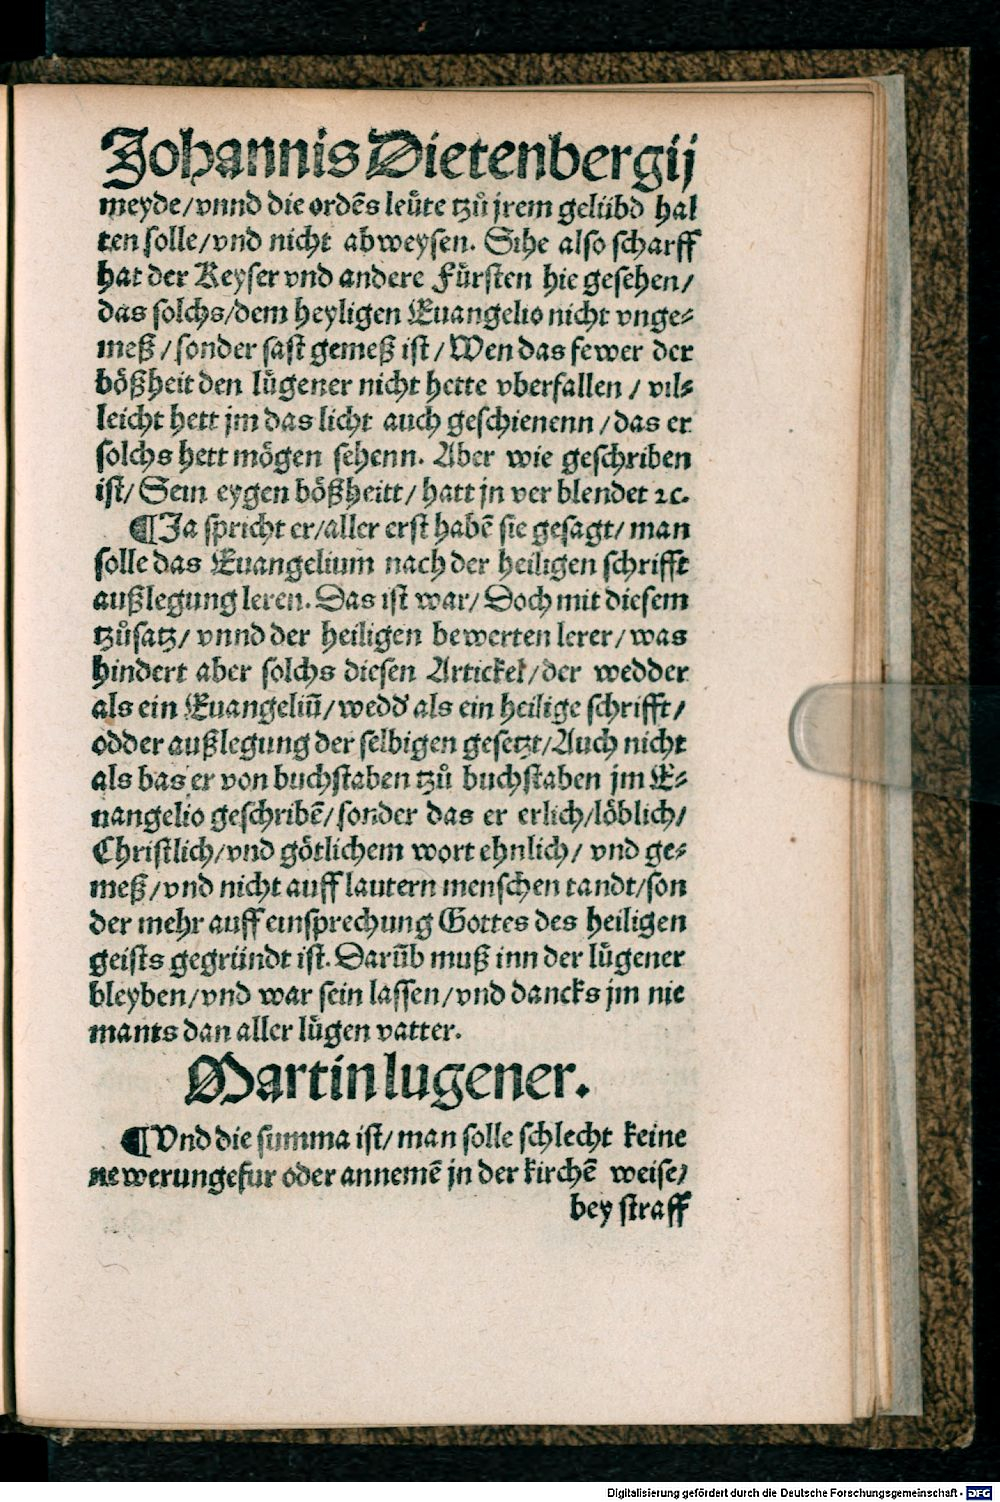 Johannis Dietenbergij
meyde/vnnd die ordēs leůte tzů jrem gelübd hal
ten solle/vnd nicht abweysen. Sihe also scharff
hat der Keyser vnd andere Fürsten hie gesehen/
das solchs/dem heyligen Euangelio nicht vnge⸗
meß/sonder fast gemeß ist/Wen das fewer der
bößheit den lügener nicht hette vberfallen/vil⸗
leicht hett jm das licht auch geschienenn/das er
solchs hett mögen sehenn. Aber wie geschriben
ist/Sein eygen bößheitt/hatt jn ver blendet ⁊c.
¶Ja spricht er/aller erst habē sie gesagt/man
solle das Euangelium nach der heiligen schrifft
außlegung leren. Das ist war/Doch mit diesem
tzůsatz/vnnd der heiligen bewerten lerer/was
hindert aber solchs diesen Artickel/der wedder
als ein Euangeliū/wedd' als ein heilige schrifft/
odder außlegung der selbigen gesetzt/Auch nicht
als bas er von buchstaben tzů buchstaben jm E⸗
uangelio geschribē/sonder das er erlich/löblich/
Christlich/vnd götlichem wort ehnlich/vnd ge⸗
meß/vnd nicht auff lautern menschen tandt/son
der mehr auff einsprechung Gottes des heiligen
geists gegründt ist. Darūb muß inn der lügener
bleyben/vnd war sein lassen/vnd dancks jm nie
mants dan aller lügen vatter.
Martin lugener.
¶Vnd die summa ist/man solle schlecht keine
newerungefur oder annemē jn der kirchē weise/
bey straff
Digitalisierung gefördert durch die Deutsche Forschungsgemeinschaft - DFG